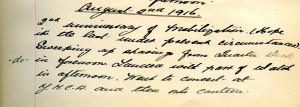 August 2nd 1916.
2nd Anniversary of Mobilization. (Hope
it the last under present circumstances)
Sweeping up shaving from
-do- in forenoon. Launder and part of watch
in afternoon. Went to concert at
Y.M.C.A and then into canteen.